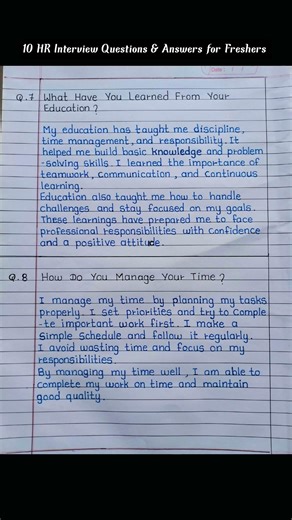 10 HR Interview Questions & Answers for Freshers
Q.7 What Have You Learned From Your
Education?
My education has taught me discipline,
time management, and responsibility. It
helped me build basic knowledge and problem
-solving skills. I learned the importance of
teamwork, communication, and continuous
learning.
Education also taught me how to handle
challenges and stay focused on my goals.
These learnings have prepared me to face
professional responsibilities with confidence
and a positive attitude.
Q.8 How Do You Manage Your Time?
I manage my time by planning my tasks
properly. I set priorities and try to comple
-te important work first. I make a
simple schedule and follow it regularly.
I avoid wasting time and focus on my
responsibilities.
By managing my time well, I am able to
complete my work on time and maintain
good quality.